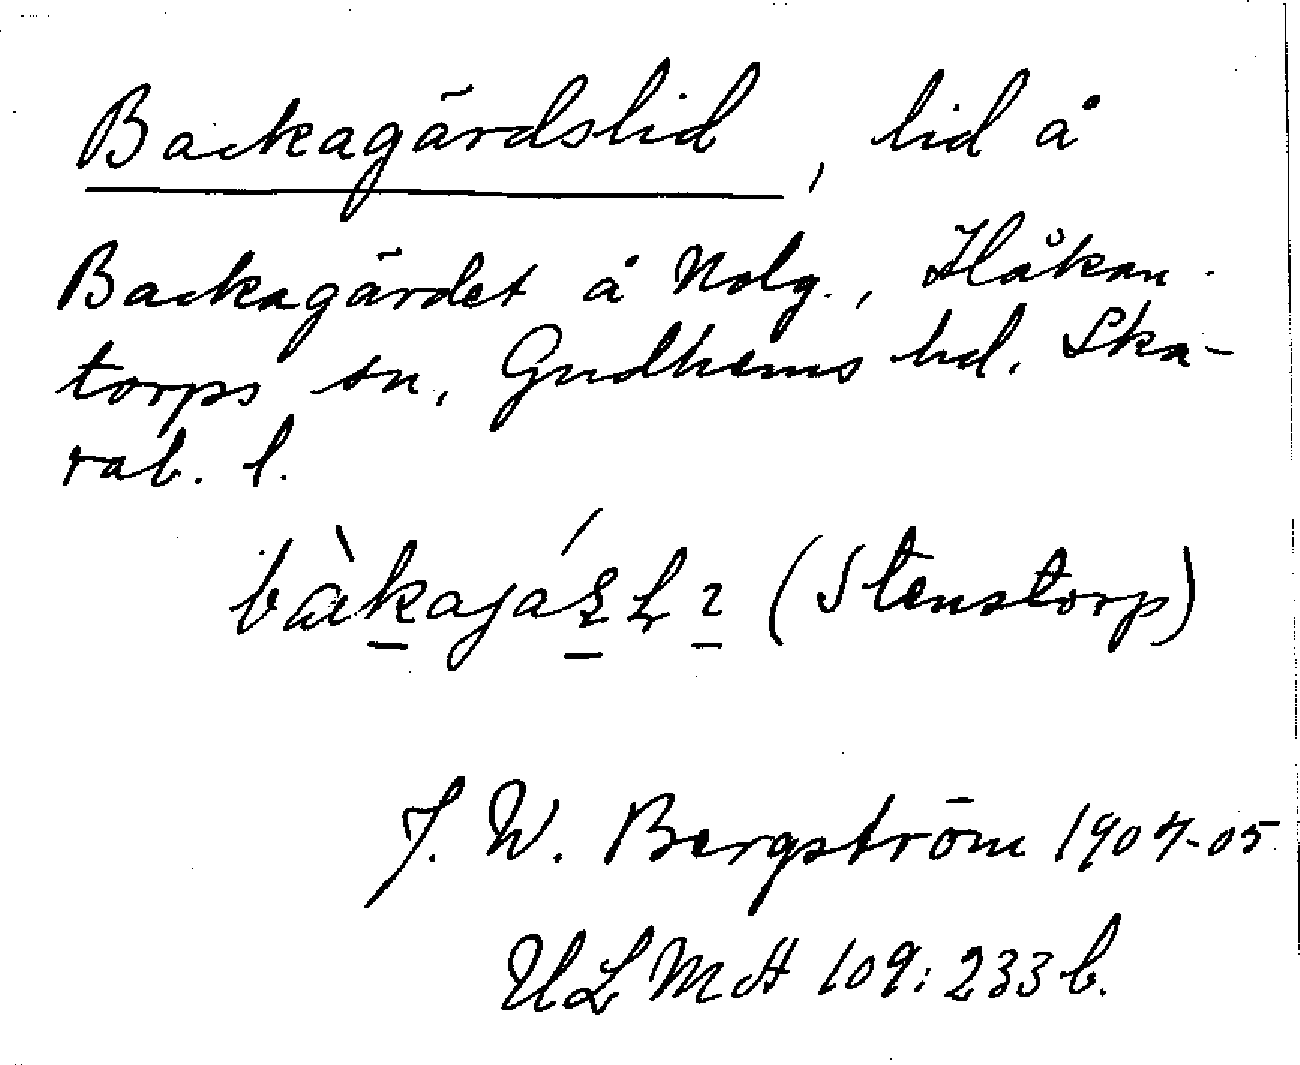 Backagärdslid, lid å
Backagärdet å Nolg., Håkan-
torps sn, Gudhems hd. Ska-
rab. l.
(Stenstorp)
J. W. Bergström 1904-05
ULMA 109:233 b.